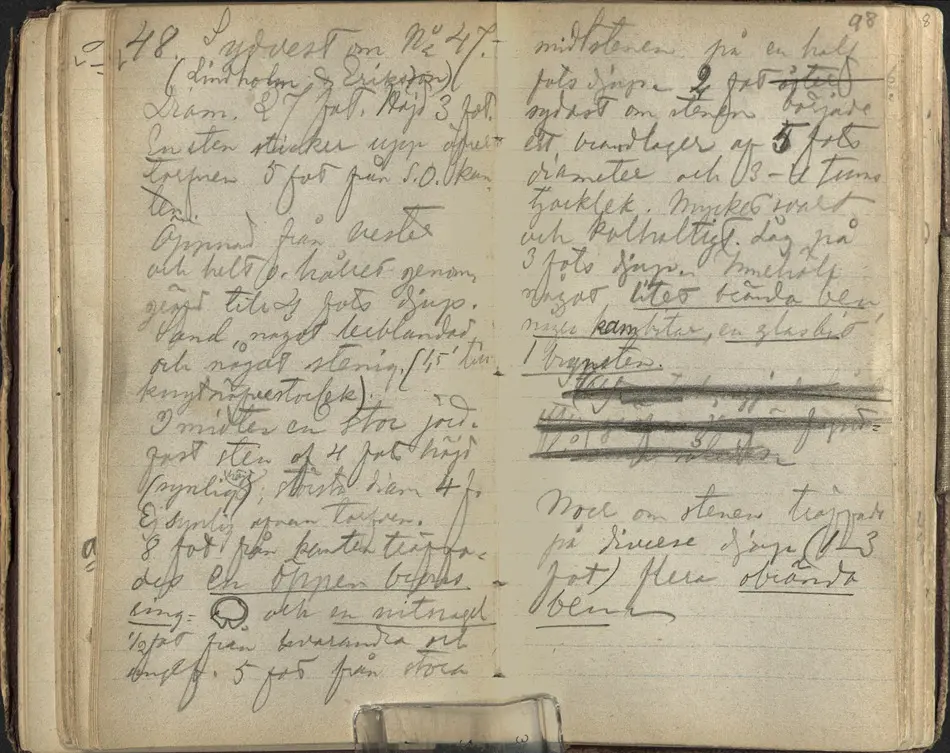 48. Sydvest om No 47.-
(Lindholm & Eriksson)
Diam. 27 fot. Höjd 3 fot.
En sten sticker upp öfver
torfven 5 fot från S.O. kan-
ten.
Öppnad från vester
och helt o. hållet genom
gräfd till 4 fots djup.
Sand, något lerblandad
och något stenig. (1,5' till
knytnäfvestorlek).
I midten en stor jord-
fast sten af 4 fots höjd
(synlig), största diam 4 f.
Ej synlig ofvan torfven.
a 8 fot från kanten träffa-
des en öppen brons
ring= och en nitnagel
1/2 fot från hvarandra och
5 fot från stora
98
midtstenen på en half
fots djup. 2 fot öster
sydost om stenen började
ett brandlager af 5 fots
diameter och 3-4 tums
tjocklek. Mycket svart
och kolhaltigt. Låg på
3 fots djup. Innehöll
något litet brända ben
några kambitar, en glasbit
1 brynsten.
Norr om stenen träffade
på diverse djup (1-3
fot) flera obrända
ben